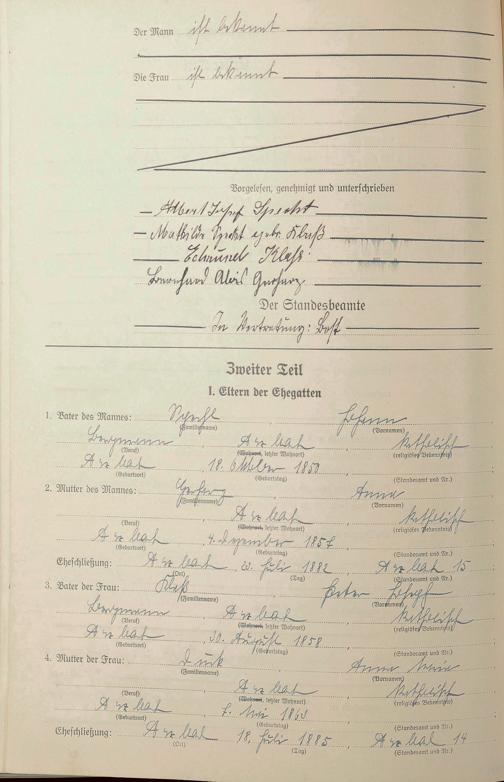 Der Mann ist bekannt
Die Frau ist bekannt
Vorgelesen, genehmigt und unterschrieben
Albert Josef Specht
Mathilde Specht gebr. Klaß
Edmund Klaß
Bernhard Alois Gerharz
Der Standesbeamte
In Vertretung: Bast
Zweiter Teil
I. Eltern der Ehegatten
1. Vater des Mannes: Specht Johann
(Familienname) (Vornamen)
Bergmann Arzbach katholisch
(Beruf) (Wohnort, letzter Wohnort) (religiöses Bekenntnis)
Arzbach 18. Oktober 1850
(Geburtsort) (Geburtstag) (Standesamt und Nr.)
2. Mutter des Mannes: Anna
(Familienname) (Vornamen)
Arzbach katholisch
(Beruf) (Wohnort, letzter Wohnort) (religiöses Bekenntnis)
Arzbach 4. Dezember 1857
(Geburtsort) (Geburtstag) (Standesamt und Nr.)
Eheschließung: Arzbach Juli 1882 Arzbach 15
(Ort) (Tag) (Standesamt und Nr.)
3. Vater der Frau: Klaß Peter Josef
(Familienname) (Vornamen)
Bergmann Arzbach katholisch
(Beruf) (Wohnort, letzter Wohnort) (religiöses Bekenntnis)
Arzbach 30. August 1858
(Geburtsort) (Geburtstag) (Standesamt und Nr.)
4. Mutter der Frau: Anna Maria
(Familienname) (Vornamen)
Arzbach katholisch
(Beruf) (Wohnort, letzter Wohnort) (religiöses Bekenntnis)
Arzbach 7. Mai
(Geburtsort) (Geburtstag) (Standesamt und Nr.)
Eheschließung: Arzbach 18. Juli 1885 Arzbach 14
(Ort) (Tag) (Standesamt und Nr.)